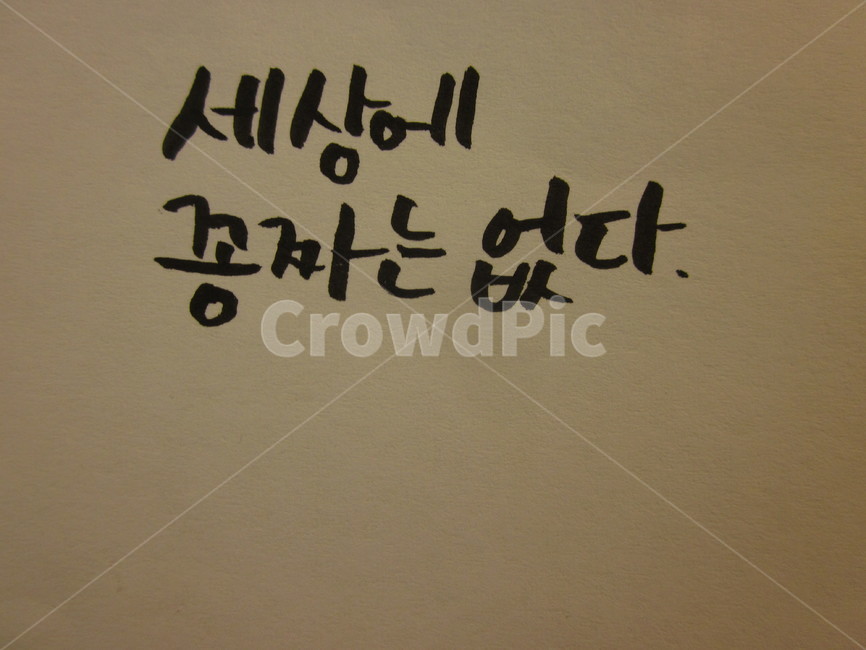 세상에
꽁짜는 없다.
CrowdPic